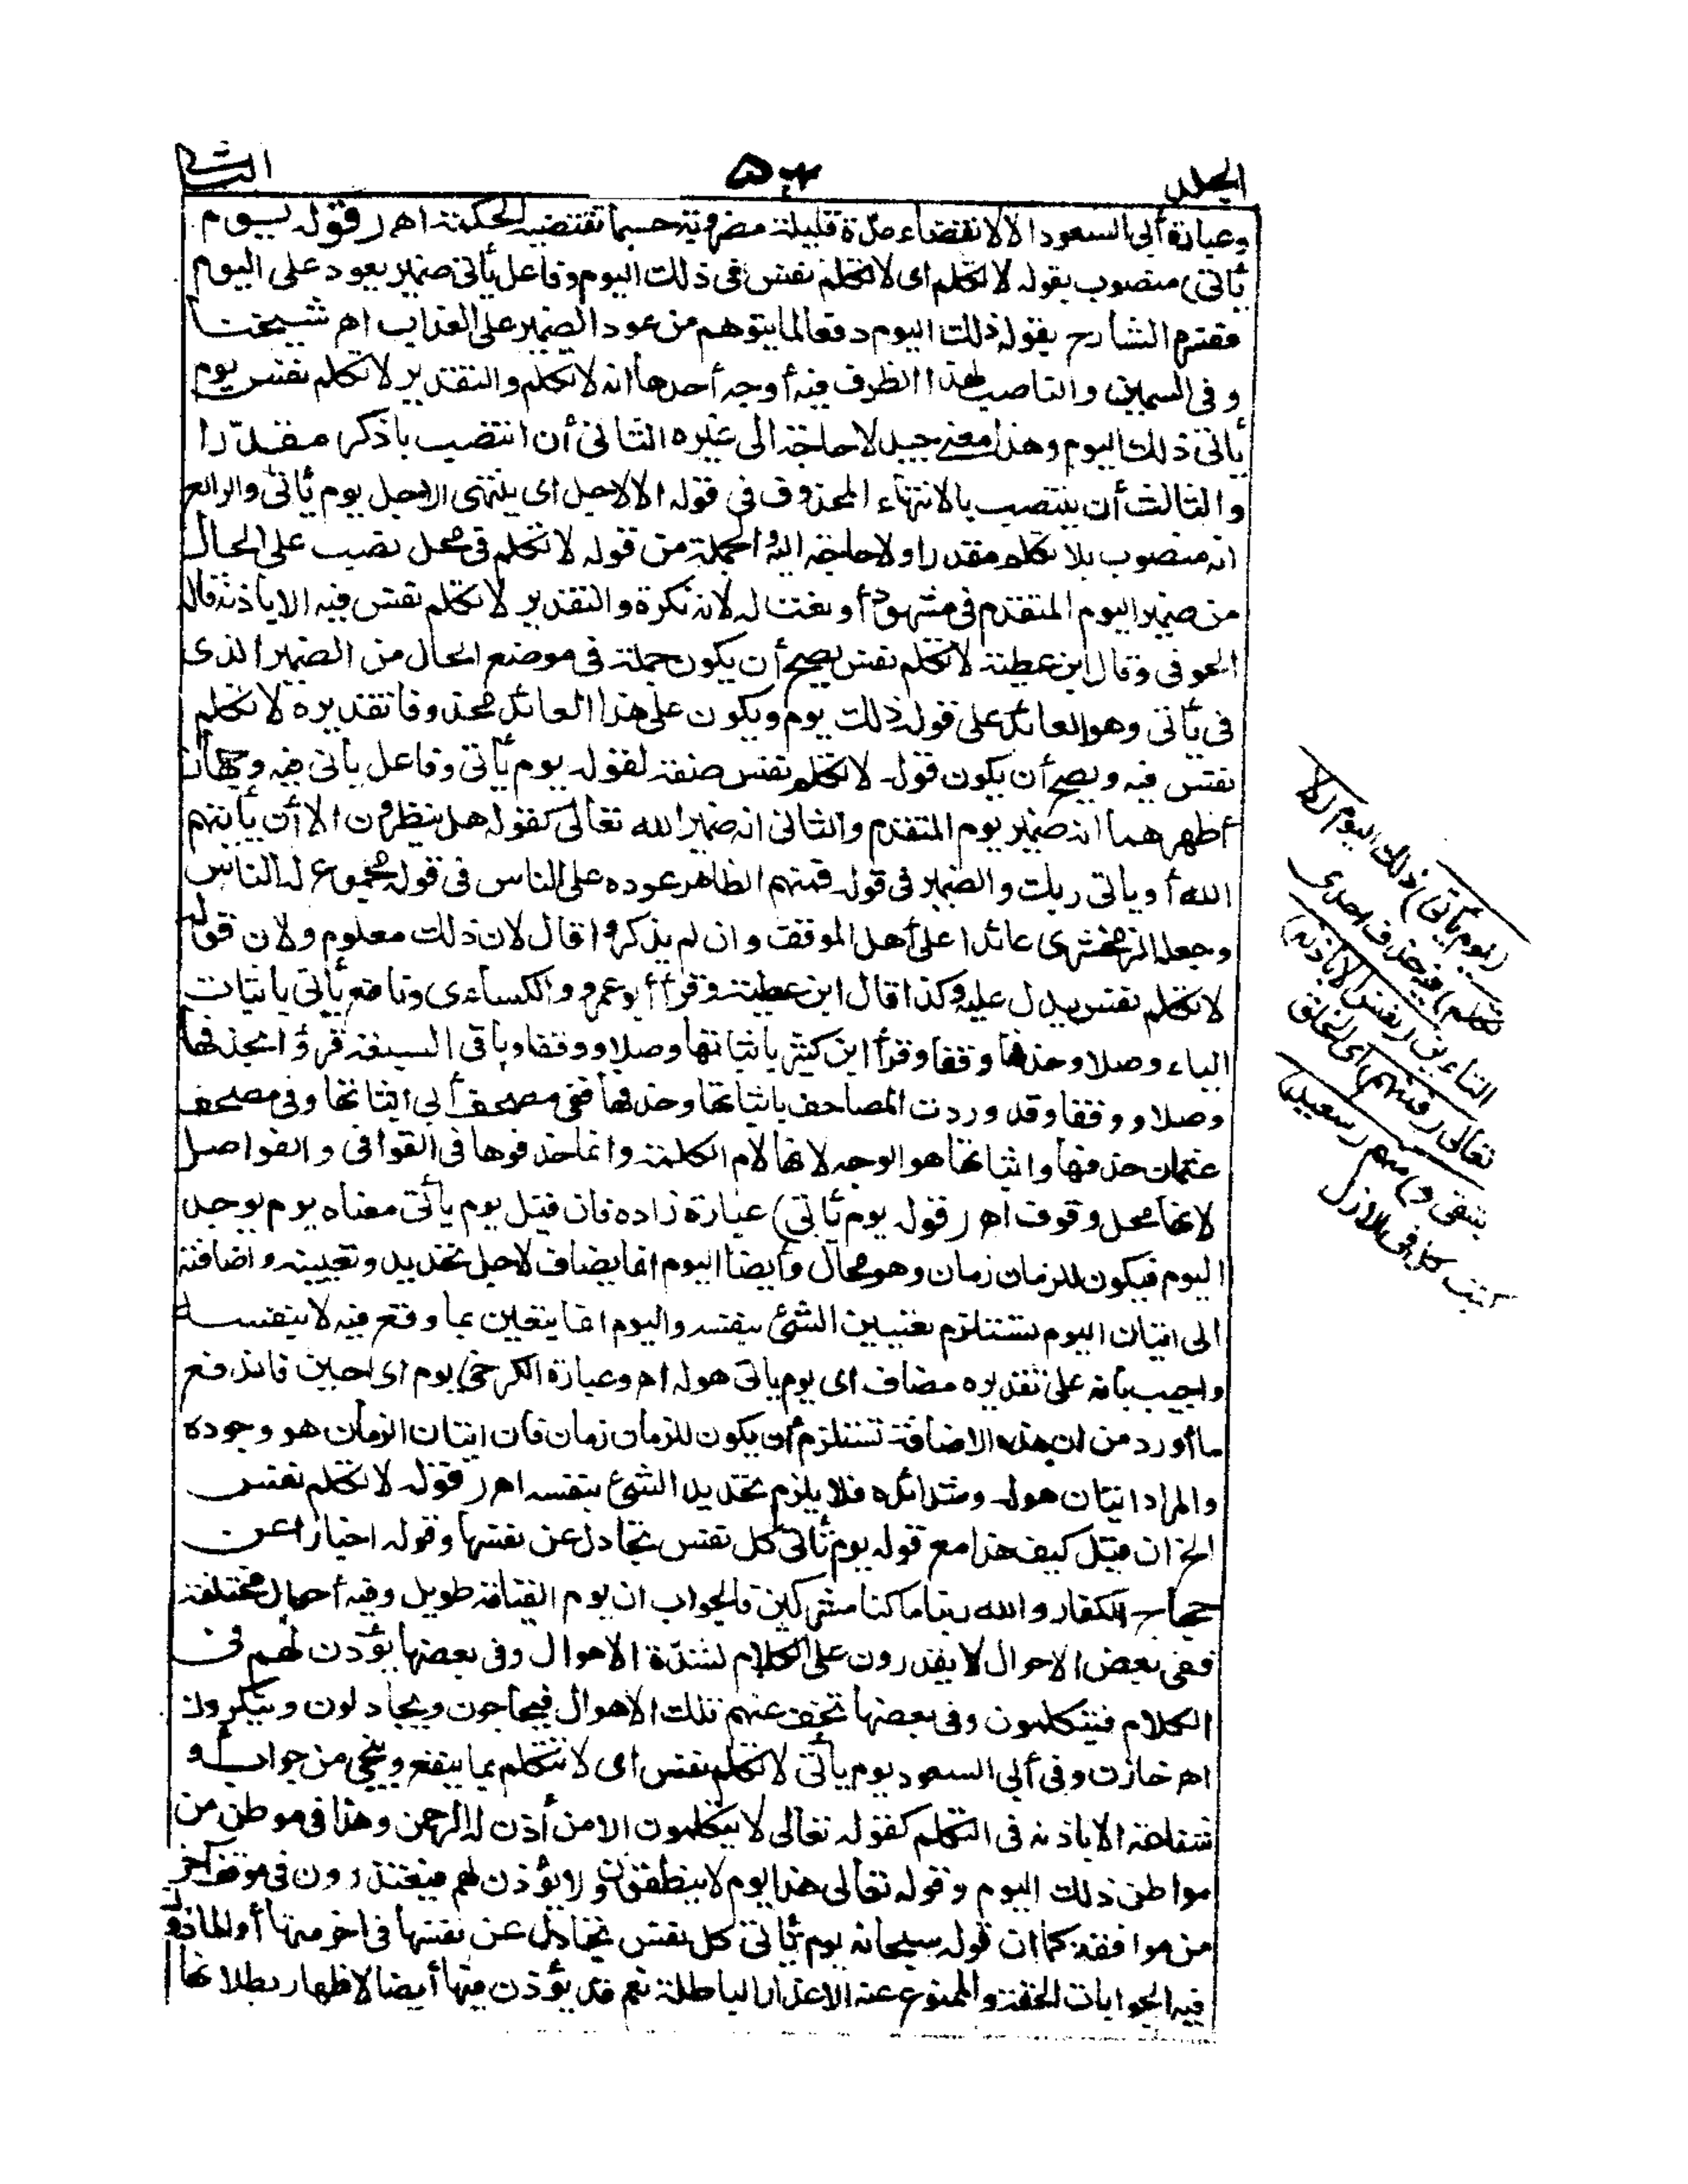 الجلد
٥٣
الثانى
وعبارة أبى السعود الا لانقضاء مدّة قليلة مضروبة حسبما تقتضيه الحكمة اهـ (قوله يوم
يأتى) منصوب بقوله لا تكلم اى لا تكلم نفس فى ذلك اليوم وفاعل يأتى ضمير يعود على اليوم
فقدّم الشارح بقوله ذلك اليوم دفعا لما يتوهم من عود الضمير على العذاب اهـ شيخنا
وفى السمين والناصب لهذا الظرف فيه أوجه أحدها انه لا تكلم والتقدير لا تكلم نفس يوم
يأتى ذلك اليوم وهذا معنى جيد لا حاجة الى غيره الثانى أن انتصب باذكر مقدّرا
والثالث أن ينتصب بالانتهاء المحذوف فى قوله الا لاجل اى ينتهى الاجل يوم يأتى والرابع
انه منصوب بلا تكلم مقدرا ولا حاجة اليه والجملة من قوله لا تكلم فى محل نصب على الحال
من ضمير اليوم المتقدم فى مشهود أو نعت له لانه نكرة والتقدير لا تكلم نفس فيه الا باذنه قاله
الحوفى وقال ابن عطية لا تكلم نفس يصح أن يكون جملة فى موضع الحال من الضمير الذى
فى يأتى وهو العائد على قوله ذلك يوم ويكون على هذا العائد محذوفا تقديره لا تكلم
نفس فيه ويصح أن يكون قوله لا تكلم نفس صفة لقوله يوم يأتى وفاعل يأتى فيه وجهان
أظهرهما انه ضمير يوم المتقدم والثانى انه ضمير الله تعالى كقوله هل ينظرون الا أن يأتيهم
الله أو ياتى ربك والضمير فى قوله فمنهم الظاهر عوده على الناس فى قوله مجموع له الناس
وجعله الزمخشرى عائدا على أهل الموقف وان لم يذكروا قال لان ذلك معلوم ولان قوله
لا تكلم نفس يدل عليه وكذا قال ابن عطية وقرأ أبو عمرو والكساءى ونافع يأتى باثبات
الياء وصلا وحذفها وقفا وقرأ ابن كثير باثباتها وصلا ووقفا وباقى السبعة قرؤا بحذفها
وصلا ووقفا وقد وردت المصاحف باثباتها وحذفها ففى مصحف أبى اثباتها وفى مصحف
عثمان حذفها واثباتها هو الوجه لانها لام الكلمة وانما حذفوها فى القوافى والفواصل
لانها محل وقوف اهـ (قوله يوم يأتى) عبارة زاده فان قيل يوم يأتى معناه يوم يوجد
اليوم فيكون للزمان زمان وهو محال وأيضا اليوم انما يضاف لاجل تحديده وتعيينه واضافته
الى اتيان اليوم تستلزم تعيين الشئ بنفسه واليوم انما يتعين بما وقع فيه لا بنفسه
واجيب بأنه على تقديره مضاف اى يوم ياتى هوله اهـ وعبارة الكرخى يوم اى حين فاندفع
ما أورد من ان هذه الاضافة تستلزم أن يكون للزمان زمان فان اتيان الزمان هو وجوده
والمراد اتيان هوله وشدائده فلا يلزم تحديد الشئ بنفسه اهـ (قوله لا تكلم نفس
الخ) ان قيل كيف هذا مع قوله يوم تأتى كل نفس تجادل عن نفسها وقوله اخبارا عن
محاجة الكفار والله ربنا ما كنا مشركين فالجواب ان يوم القيامة طويل وفيه أحوال مختلفة
ففى بعض الاحوال لا يقدرون على الكلام لشدّة الاهوال وفى بعضها يؤذن لهم فى
الكلام فيتكلمون وفى بعضها تخفف عنهم تلك الاهوال فيحاجون ويجادلون وينكرون
اهـ خازن وفى أبى السعود يوم يأتى لا تكلم نفس اى لا تتكلم بما ينفع وينجى من جواب أو
شفاعة الا باذنه فى التكلم كقوله تعالى لا يتكلمون الا من أذن له الرحمن وهذا فى موطن من
مواطن ذلك اليوم وقوله تعالى هذا يوم لا ينطقون ولا يؤذن لهم فيعتذرون فى موقف آخر
من مواقفه كما ان قوله سبحانه يوم تأتى كل نفس تجادل عن نفسها فى اخر منها أو المأذون
فيه الجوابات الحقة والممنوع عنه الاعذار الباطلة نعم قد يؤذن فيها أيضا لاظهار بطلانها
(يوم يأتى) ذلك اليوم (لا
تكلم) فيه حذف احدى
التاءين (نفس الا باذنه)
تعالى (فمنهم) اى الخلق
شقى و) منهم (سعيد)
كتب كل فى الازل